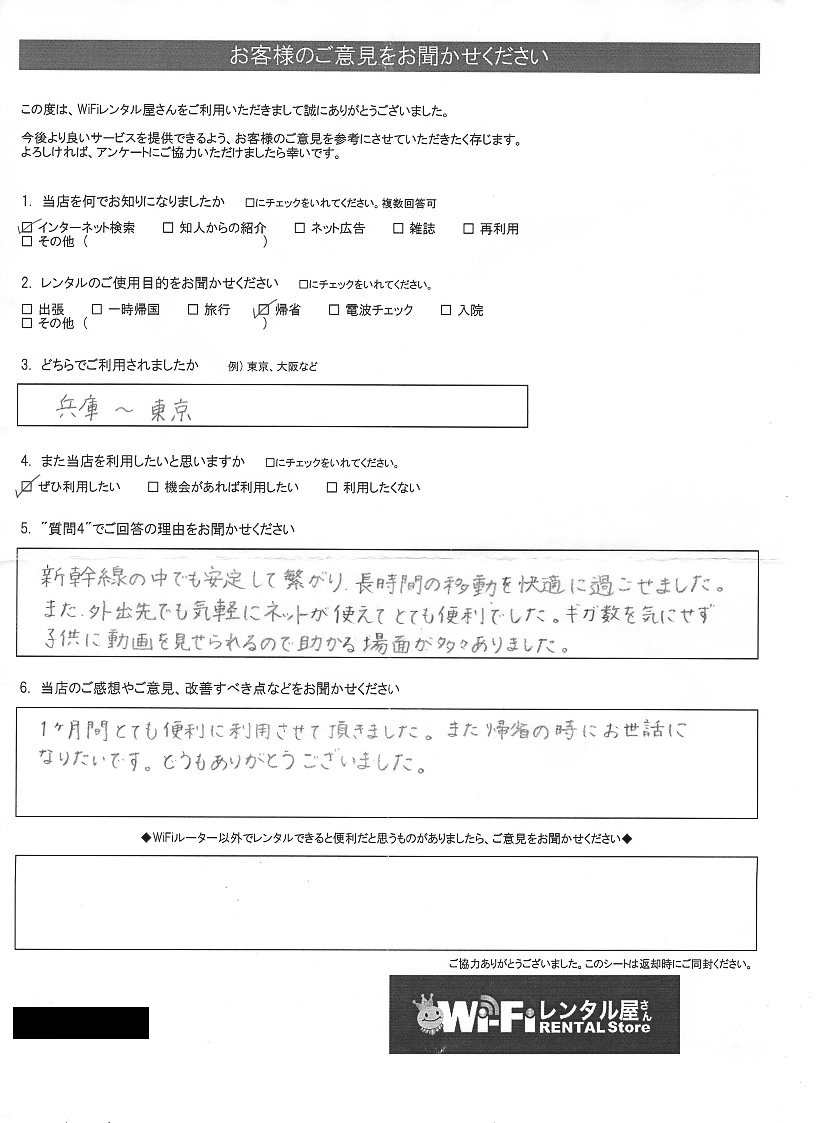 お客様のご意見をお聞かせください
この度は、WiFiレンタル屋さんをご利用いただきまして誠にありがとうございました。
今後より良いサービスを提供できるよう、お客様のご意見を参考にさせていただきたく存じます。
よろしければ、アンケートにご協力いただけましたら幸いです。
1. 当店を何でお知りになりましたか □にチェックをいれてください。複数回答可
☑ インターネット検索 □ 知人からの紹介 □ ネット広告 □ 雑誌 □ 再利用
□ その他 ( )
2. レンタルのご使用目的をお聞かせください □にチェックをいれてください。
□ 出張 □ 一時帰国 □ 旅行 ☑ 帰省 □ 電波チェック □ 入院
□ その他 ( )
3. どちらでご利用されましたか 例) 東京、大阪など
兵庫 〜 東京
4. また当店を利用したいと思いますか □にチェックをいれてください。
☑ ぜひ利用したい □ 機会があれば利用したい □ 利用したくない
5. ″質問4″でご回答の理由をお聞かせください
新幹線の中でも安定して繋がり、長時間の移動を快適に過ごせました。
また、外出先でも気軽にネットが使えてとても便利でした。ギガ数を気にせず
子供に動画を見せられるので助かる場面が多々ありました。
6. 当店のご感想やご意見、改善すべき点などをお聞かせください
1ヶ月間とても便利に利用させて頂きました。また帰省の時にお世話に
なりたいです。どうもありがとうございました。
◆WiFiルーター以外でレンタルできると便利だと思うものがありましたら、ご意見をお聞かせください◆
ご協力ありがとうございました。このシートは返却時にご同封ください。
Wi-Fiレンタル屋さん
RENTAL Store